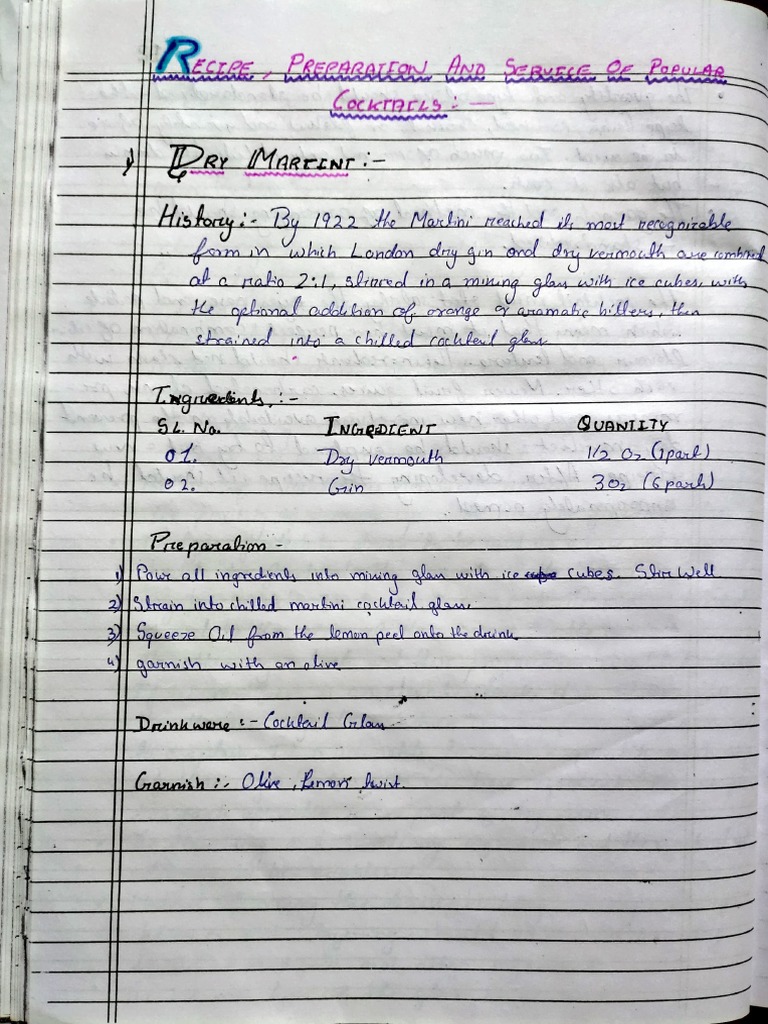 RECIPE, PREPARATION AND SERVICE OF POPULAR
COCKTAILS:—
1) DRY MARTINI:-
History:- By 1922 the Martini reached its most recognizable
form in which London dry gin and dry vermouth are combined
at a ratio 2:1, stirred in a mixing glass with ice cubes, with
the optional addition of orange or aromatic bitters, then
strained into a chilled cocktail glass
Ingredients:-
SL. No. INGREDIENT QUANTITY
01. Dry vermouth 1/2 Oz (1part)
02. Gin 3Oz (6 part)
Preparation -
1) Pour all ingredients into mixing glass with ice cubes. Stir Well
2) Strain into chilled martini cocktail glass.
3) Squeeze Oil from the lemon peel onto the drink.
4) garnish with an olive
Drinkware:- Cocktail Glass
Garnish:- Olive, Lemon twist.